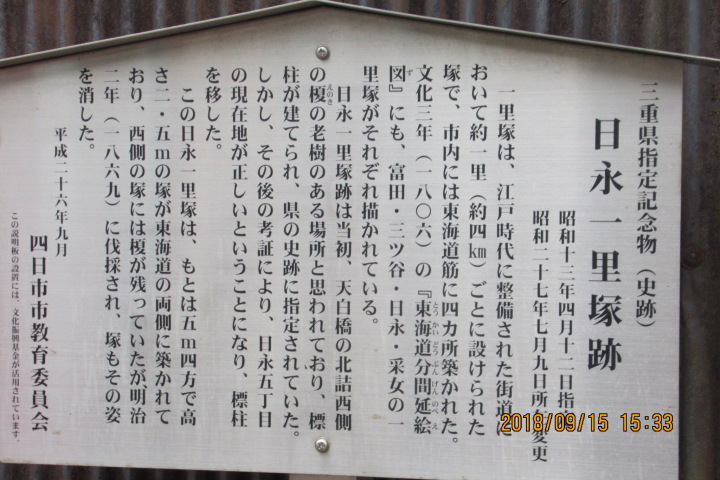 三重県指定記念物（史跡）
日永一里塚跡
昭和十三年四月十二日指
昭和二十七年七月九日所在変更
一里塚は、江戸時代に整備された街道に
おいて約一里（約四㎞）ごとに設けられた
塚で、市内には東海道筋に四カ所築かれた。
文化三年（一八〇六）の『東海道分間延絵
図』にも、富田・三ツ谷・日永・采女の一
里塚がそれぞれ描かれている。
日永一里塚跡は当初、天白橋の北詰西側
の榎の老樹のある場所と思われており、標
柱が建てられ、県の史跡に指定されていた。
しかし、その後の考証により、日永五丁目
の現在地が正しいということになり、標柱
を移した。
この日永一里塚は、もとは五ｍ四方で高
さ二・五ｍの塚が東海道の両側に築かれて
おり、西側の塚には榎が残っていたが明治
二年（一八六九）に伐採され、塚もその姿
を消した。
平成二十六年九月
四日市市教育委員会
この説明板の設置には、文化振興基金が活用されています。
2018/09/15 15:33